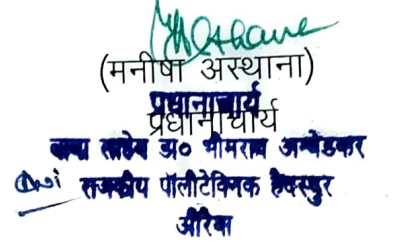 (मनीषा अस्थाना)
प्रधानाचार्य
प्रधानाचार्य
बाबा साहेब डा० भीमराव अम्बेडकर
राजकीय पॉलीटेक्निक हैबरपुर
औरैया